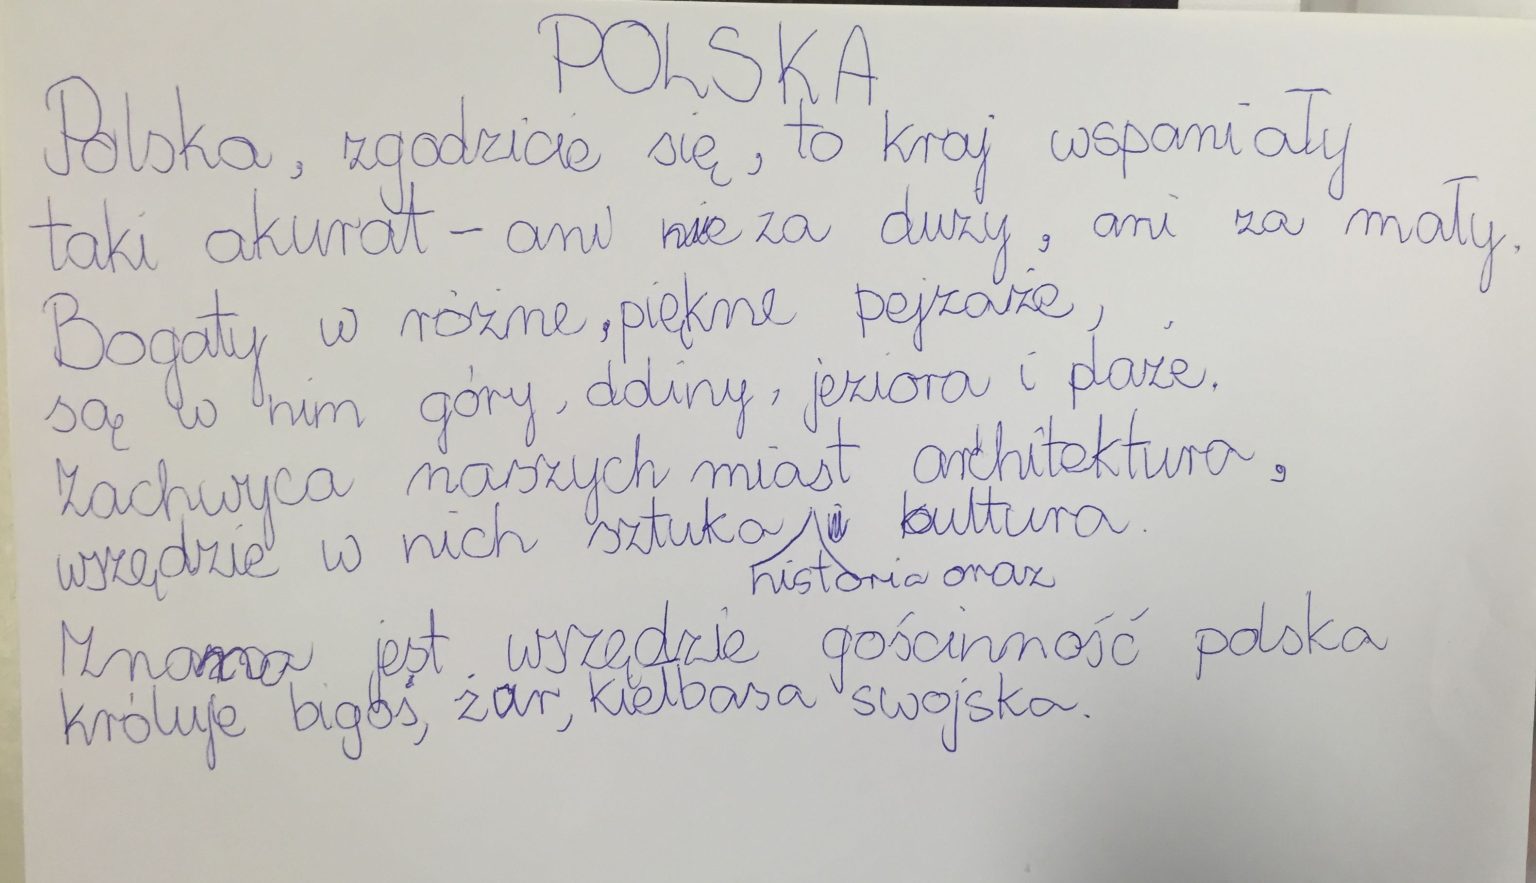 POLSKA
Polska, zgodzicie się, to kraj wspaniały
taki akurat - ani nie za duży, ani za mały.
Bogaty w różne, piękne pejzaże,
są w nim góry, doliny, jeziora i plaże.
Zachwyca naszych miast architektura,
wszędzie w nich sztuka i kultura.
historia oraz
Znana jest wszędzie gościnność polska
króluje bigos, żur, kiełbasa swojska.